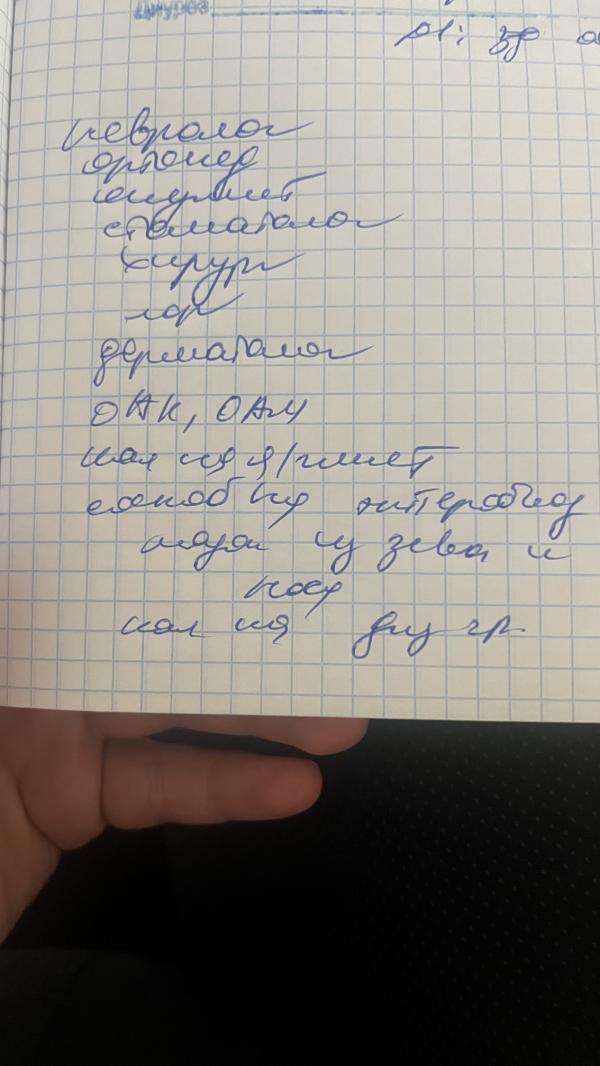 Ds: зд
невролог
ортопед
окулист
стоматолог
хирург
лор
дерматолог
ОАК, ОАМ
кал на я/глист
соскоб на энтеробиоз
мазок из зева и
носа
кал на диз гр.